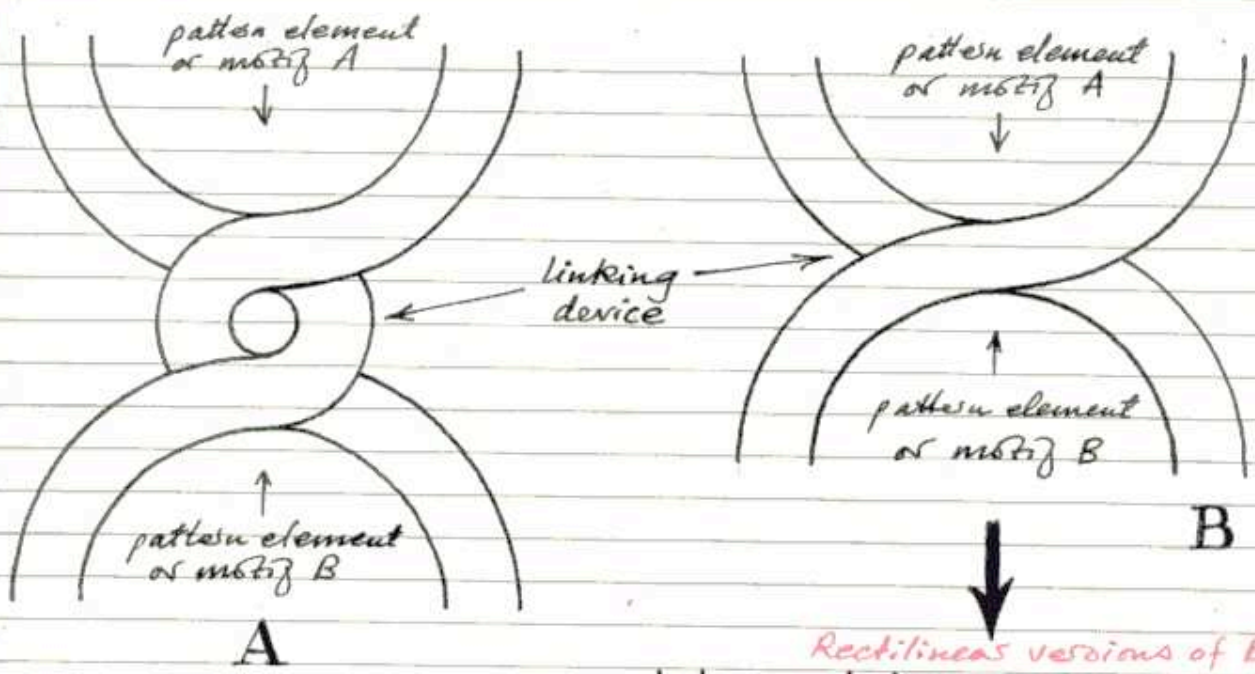 pattern element
or motif A
pattern element
or motif A
linking
device
pattern element
or motif B
pattern element
or motif B
B
A
Rectilinear versions of B